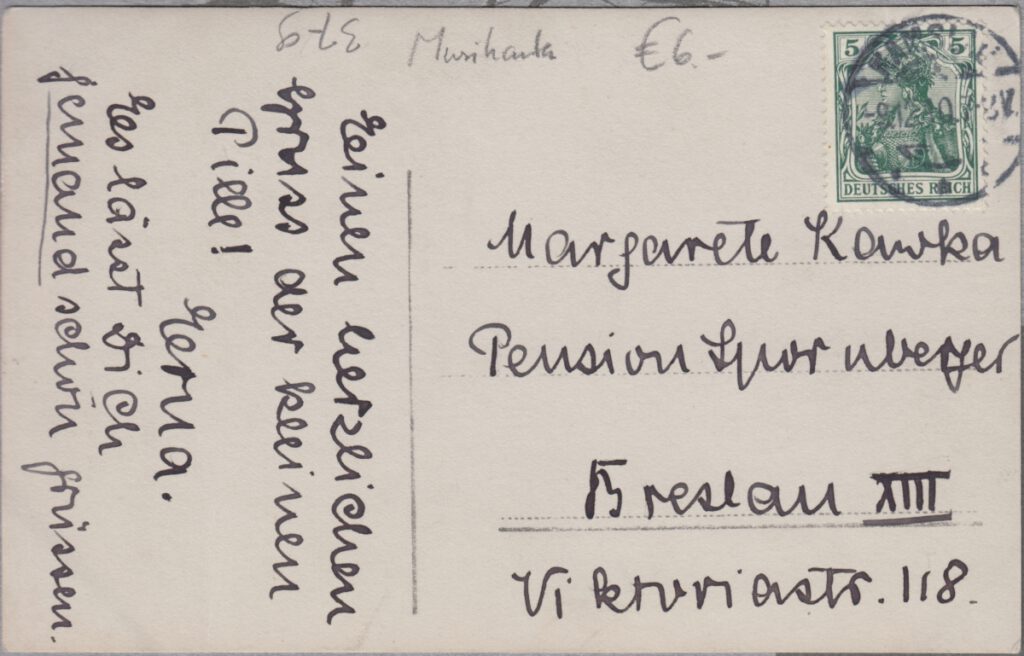 379
€6.-
5 5
DEUTSCHES REICH
Einen herzlichen
Gruss der kleinen
Pille!
Erna.
Es lässt Dich
Jemand schön grüssen.
Margarete Kawka
Pension Spornberger
Breslau XIII
Viktoriastr. 118.